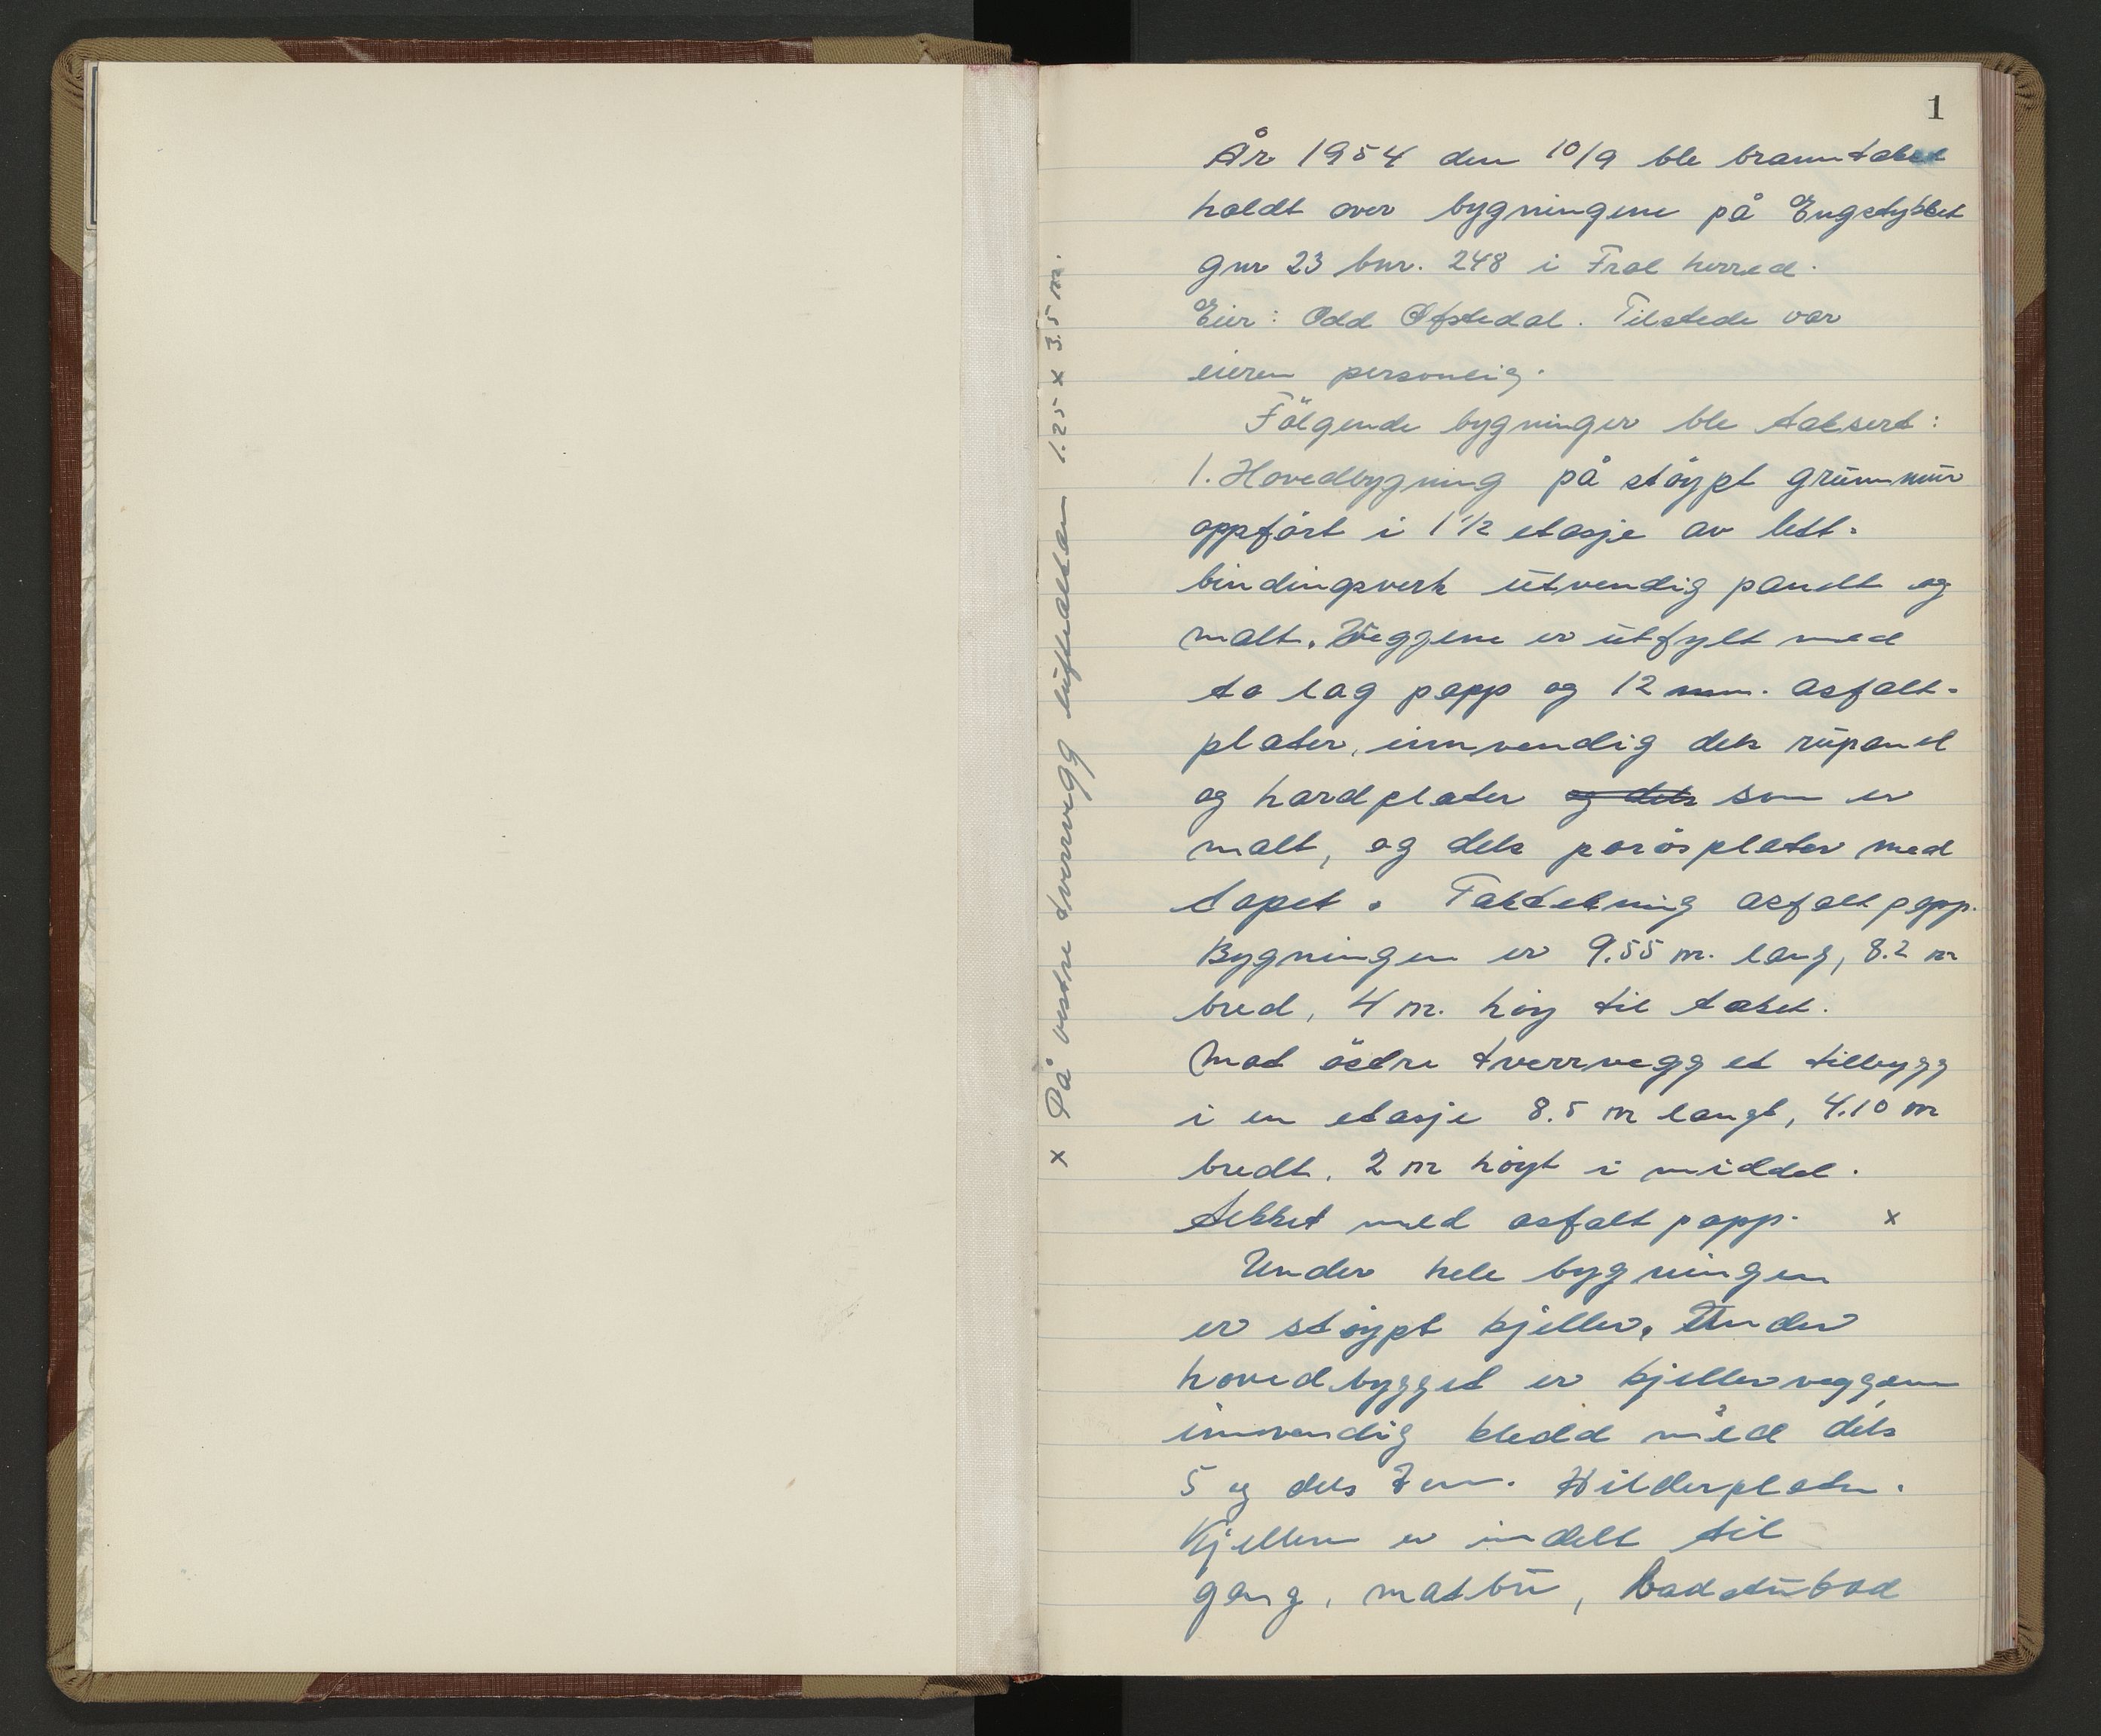 1
År 1954 den 10/9 ble branntakst
holdt over bygningene på Engstykket
gnr 23 bnr. 248 i Frol herred.
Eier: Odd Øfstedal. Tilstede var
eieren personlig.
Følgende bygninger ble taksert:
1. Hovedbygning på støypt grunnmur
oppført i 1 1/2 etasje av lett-
bindingsverk utvendig panelt og
malt. Veggene er utfylt med
to lag papp og 12 mm. asfalt-
plater, innvendig dels rupanel
og hardplater og dels som er
malt, og dels porøsplater med
tapet. Taktekning asfaltpapp.
Bygningen er 9.55 m. lang, 8.2 m
bred, 4 m. høy til taket.
Mot østre tverrvegg et tilbygg
i en etasje 8.5 m langt, 4.10 m
bredt, 2 m høyt i middel.
Tekket med asfaltpapp. x
Under hele bygningen
er støypt kjeller. Under
hovedbygget er kjellerveggene
innvendig kledd med dels
5 og dels 7 cm. plater.
Kjelleren er inndelt til
gang, matbu, badstubad
x På vestre tverrvegg luftealtan 1.25 x 3.5 m.